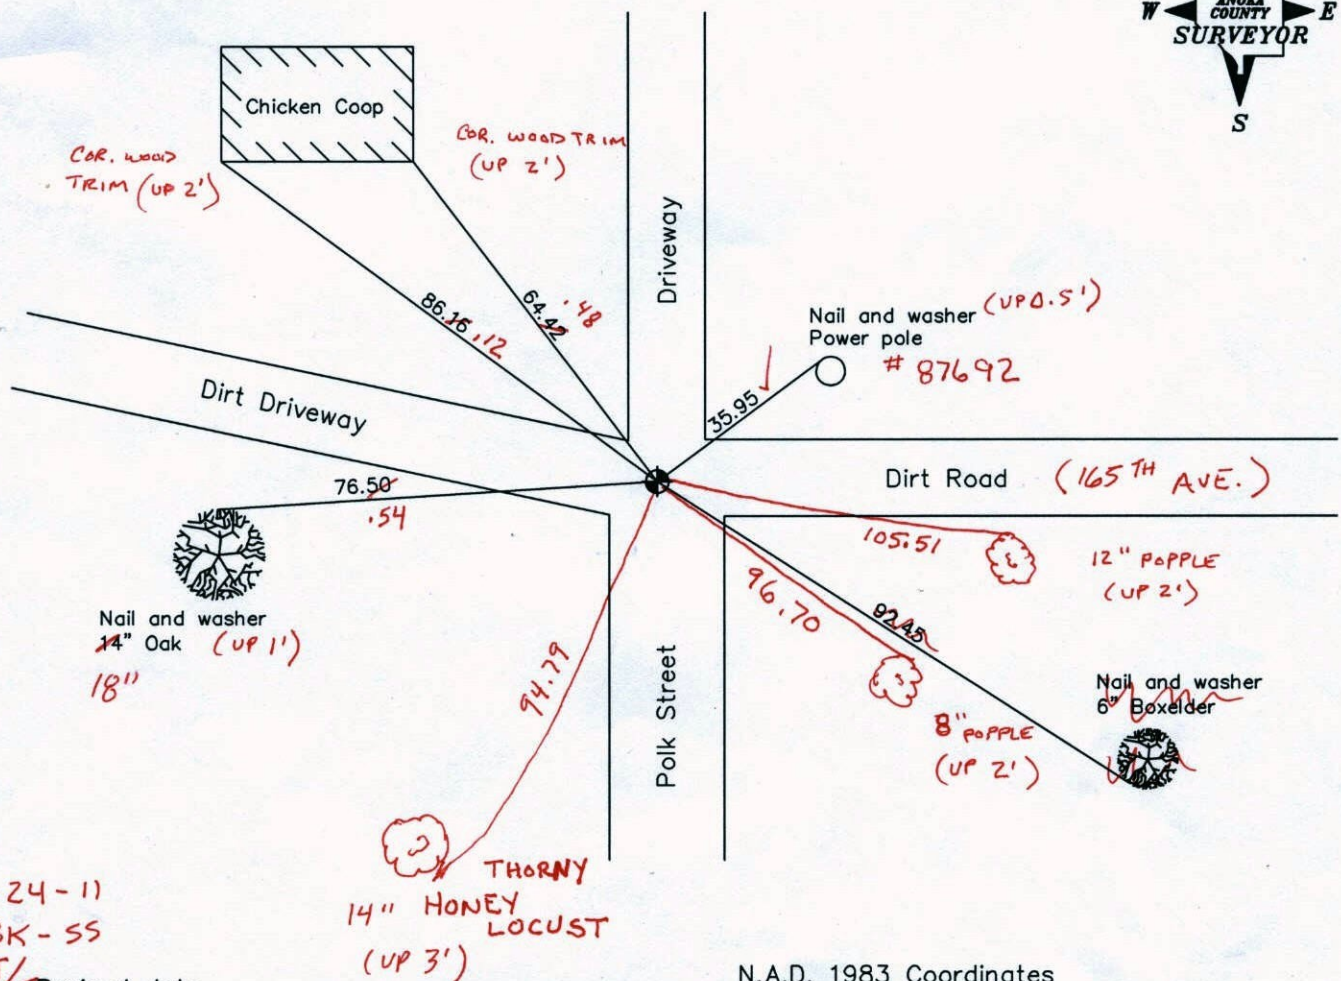 W ANOKA E
COUNTY
SURVEYOR
S
Chicken Coop
COR. WOOD
TRIM (UP 2')
COR. WOOD TRIM
(UP 2')
Driveway
86.16 .12
64.42 .48
Nail and washer (UP 0.5')
Power pole
# 87692
35.95
Dirt Driveway
Dirt Road (165TH AVE.)
76.50
.54
105.51
12" POPPLE
(UP 2')
Nail and washer
14" Oak (UP 1')
18"
96.70
92.45
94.79
Polk Street
Nail and washer
6" Boxelder
8" POPPLE
(UP 2')
THORNY
14" HONEY
LOCUST
(UP 3')
24-11
K-SS
N.A.D. 1983 Coordinates